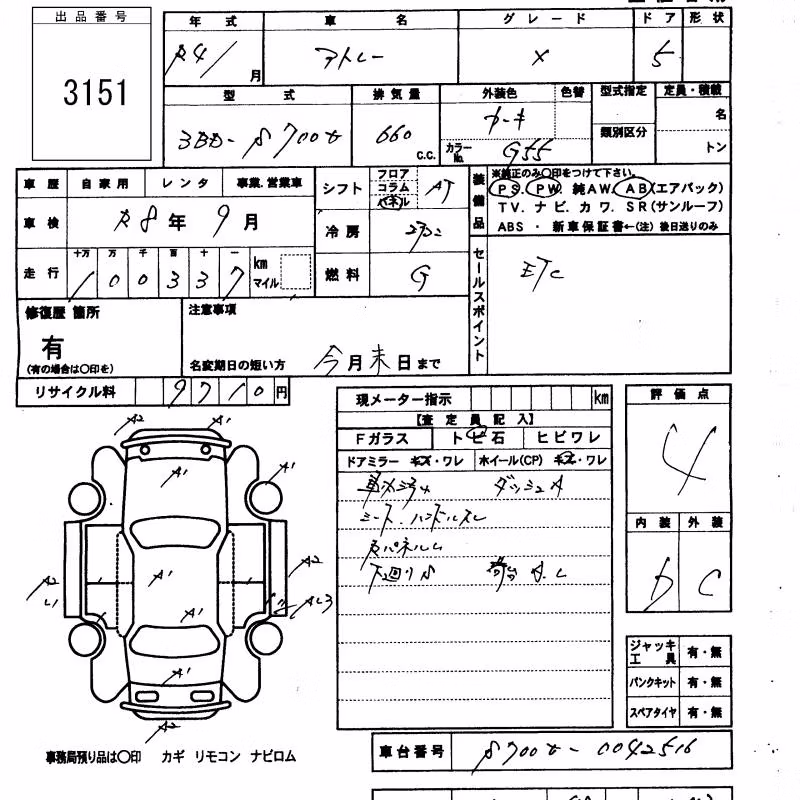 出品番号
3151
年式 車名 グレード ドア 形状
R4/ 月 アトレー X 5
型式 排気量 外装色 色替 型式指定 定員・積載
3BD- S700V 660 C.C. カーキ 名
カラーNo. G55 類別区分 トン
車歴 自家用 レンタ 事業.営業車
シフト フロア コラム パネル AT
装備品 ※純正のみ○印をつけて下さい。
PS. PW. 純AW. AB(エアバック)
TV. ナビ. カワ. SR(サンルーフ)
ABS ・ 新車保証書←(注)後日送りのみ
車検 R8年 9月
冷房
走行 十万 万 千 百 十 一
100337 km マイル
燃料 G
セールスポイント ETC
修復歴 箇所
有
(有の場合は○印を)
注意事項
名変期日の短い方 今月末日まで
リサイクル料 9710円
現メーター指示 km
【査定員記入】
Fガラス トビ石 ヒビワレ
ドアミラー キズ・ワレ ホイール(CP) キズ・ワレ
ダッシュA
シート.ハンドルスレ
下廻りS
評価点
4
内装 外装
b C
A2 A' A' A' A2 A' A2 A' A'
ジャッキ工具 有・無
パンクキット 有・無
スペアタイヤ 有・無
事務局預り品は○印 カギ リモコン ナビロム
車台番号 S700V-0042516